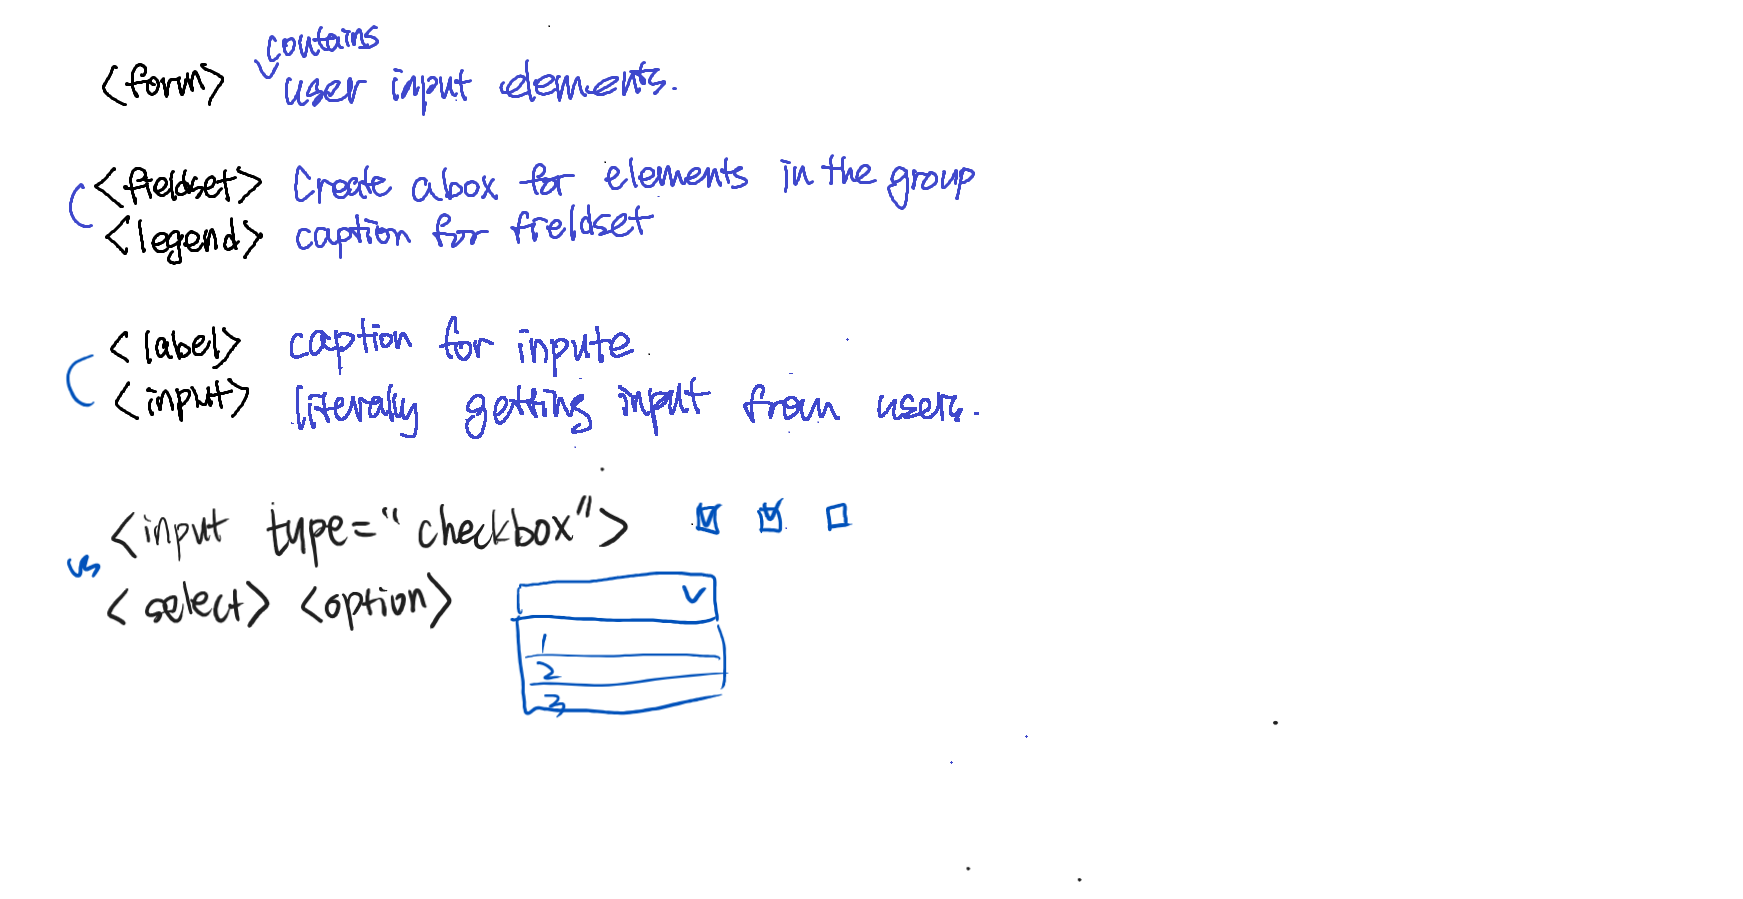 contains
<form> user input elements.
<fieldset> Create a box for elements in the group
<legend> caption for fieldset
<label> caption for inpute
<input> literaly getting input from users.
<input type="checkbox">
vs
<select> <option>
1
2
3